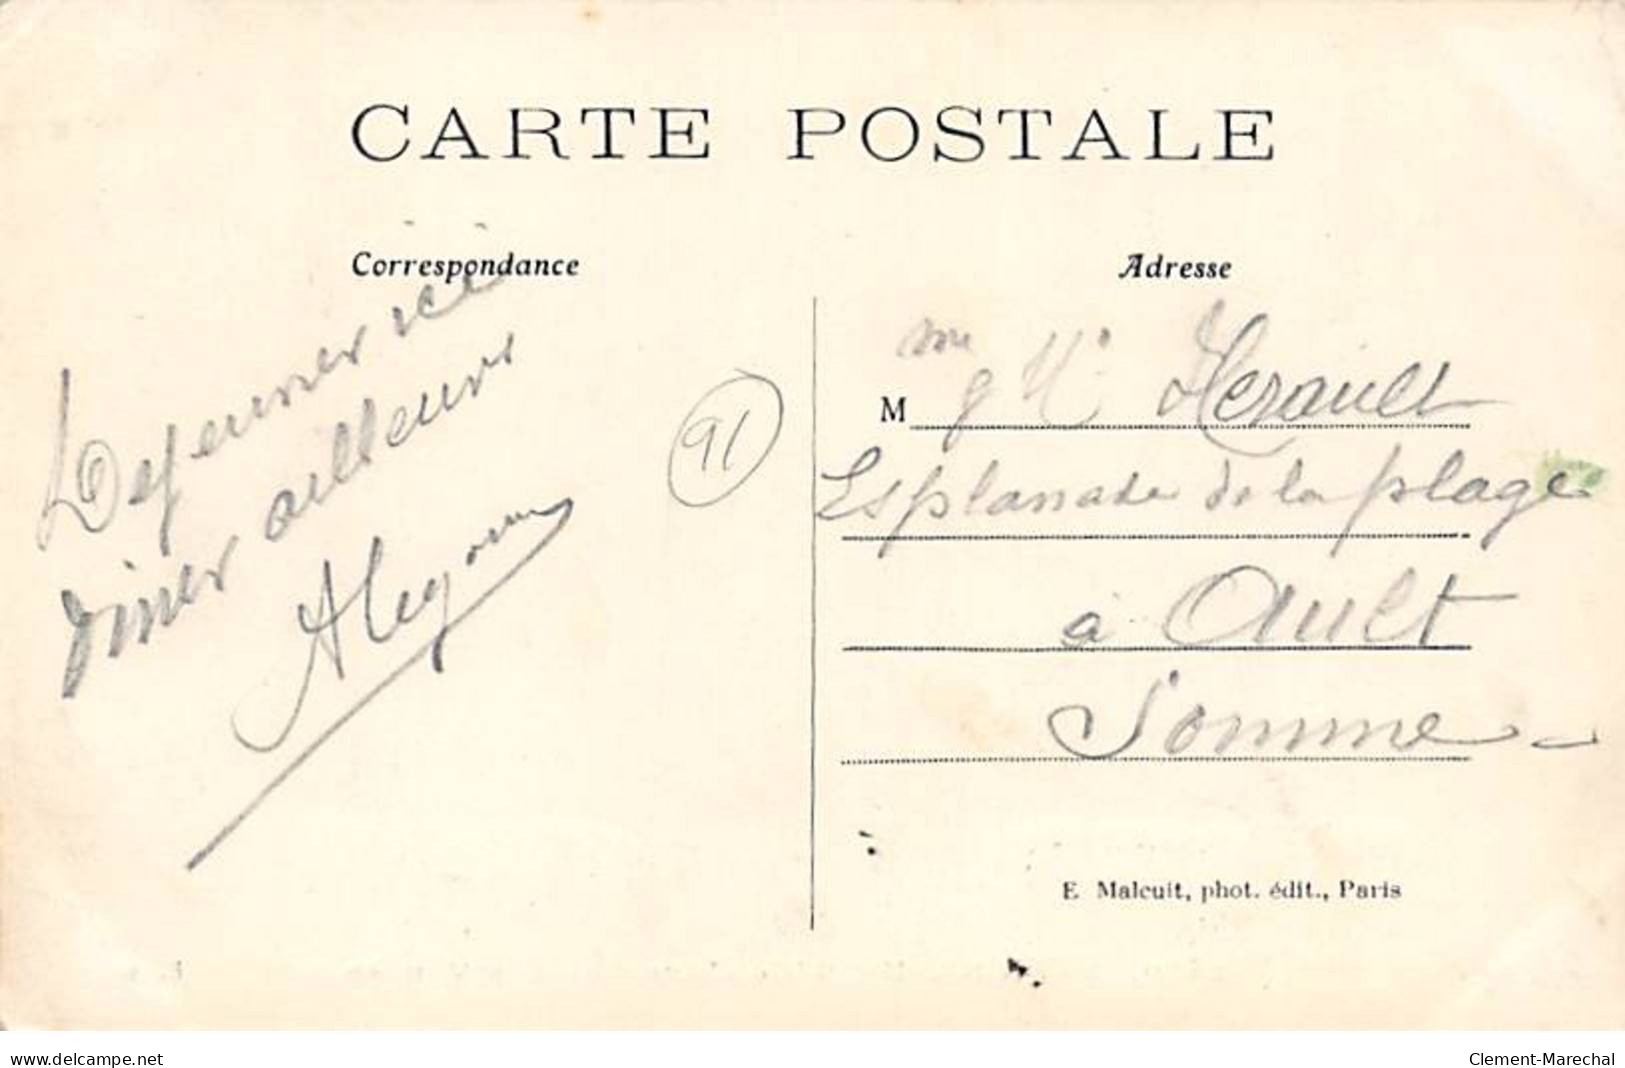 CARTE POSTALE
Correspondance
Dejeuner ici
diner ailleurs
91
Adresse
M me & Mr Herault
Esplanade de la plage
à Ault
Somme
E. Malcuit, phot. édit., Paris
www.delcampe.net
Clement-Marechal